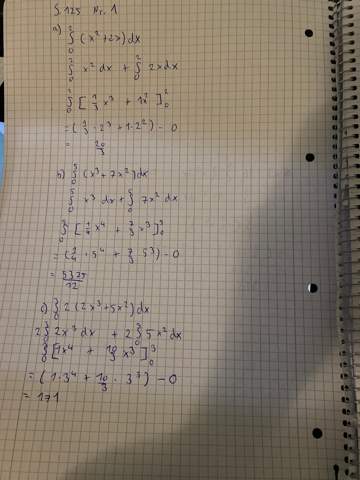 S. 125 Nr. 1
a) ∫₀² (x² + 2x) dx
∫₀² x² dx + ∫₀² 2x dx
∫₀² [1/3 x³ + 1x²]₀²
= (1/3 · 2³ + 1 · 2²) - 0
= 20/3
b) ∫₀⁵ (x³ + 7x²) dx
∫₀⁵ x³ dx + ∫₀⁵ 7x² dx
[1/4 x⁴ + 7/3 x³]₀⁵
= (1/4 · 5⁴ + 7/3 · 5³) - 0
= 5375/12
c) ∫₀³ 2 (2x³ + 5x²) dx
2 ∫₀³ 2x³ dx + 2 ∫₀³ 5x² dx
∫₀³ [1x⁴ + 10/3 x³]₀³
= (1 · 3⁴ + 10/3 · 3³) - 0
= 171